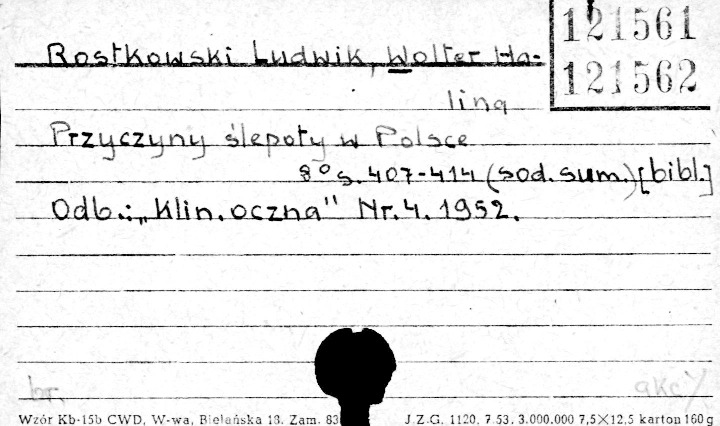 121561
121562
Rostkowski Ludwik, Wolter Ha-
lina
Przyczyny ślepoty w Polsce
8° s. 407-414 (sod. sum.) [bibl.]
Odb.: „Klin. oczna" Nr. 4. 1952.
br.
akcy
Wzór Kb-15b CWD, W-wa, Bielańska 18. Zam. 83
J.Z.G. 1120. 7.53. 3.000.000 7,5×12,5 karton 160 g